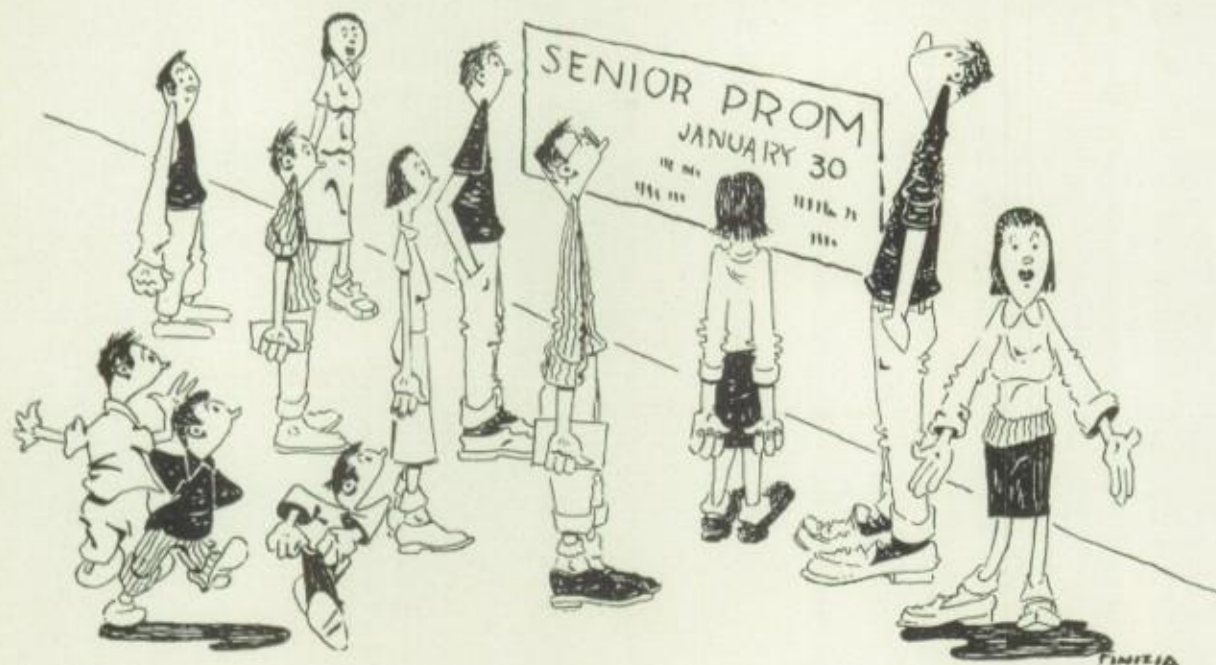 SENIOR PROM
JANUARY 30
FINIZIA